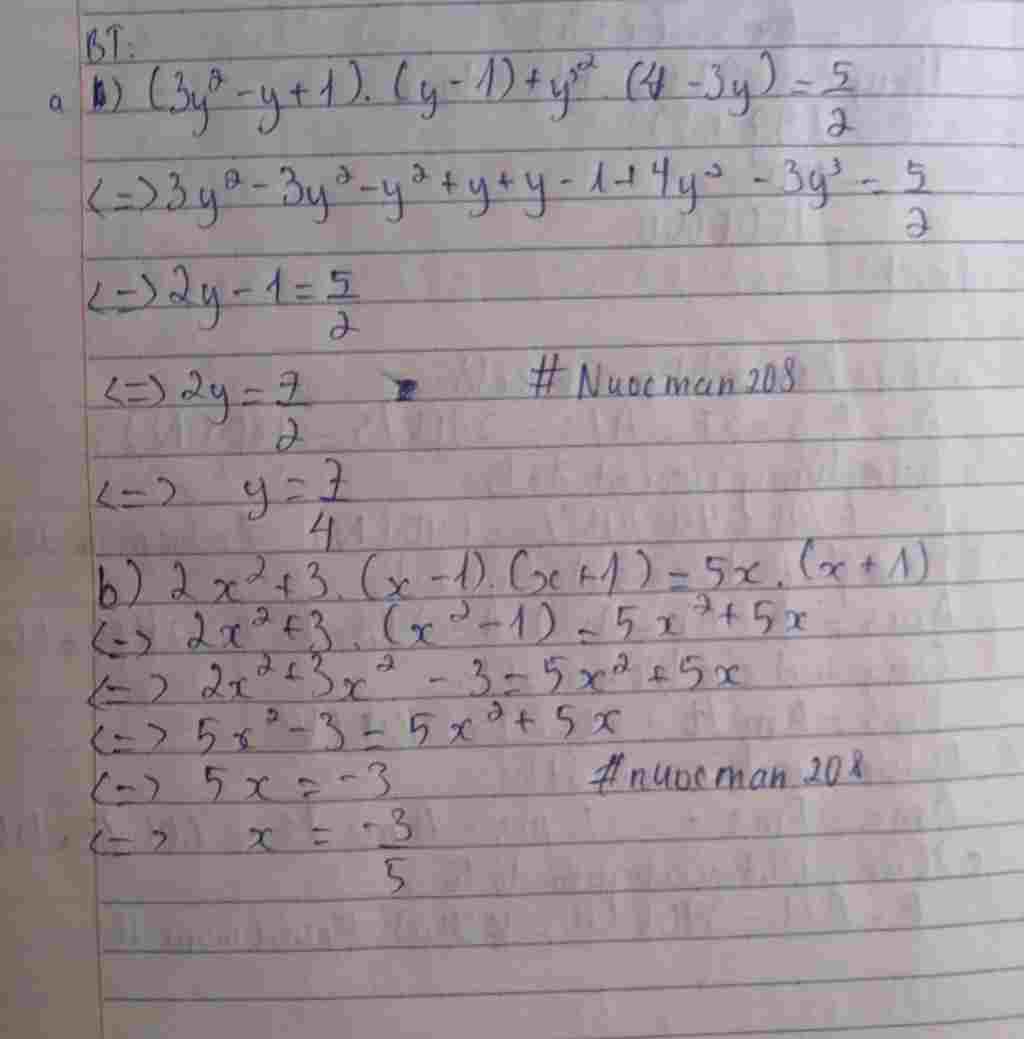 BT:
a) (3y² - y + 1). (y - 1) + y². (4 - 3y) = 5/2
<=> 3y² - 3y² - y² + y + y - 1 + 4y² - 3y³ = 5/2
<=> 2y - 1 = 5/2
<=> 2y = 7/2 # Nuocman208
<=> y = 7/4
b) 2x² + 3. (x - 1). (x + 1) = 5x. (x + 1)
<=> 2x² + 3. (x² - 1) = 5x² + 5x
<=> 2x² + 3x² - 3 = 5x² + 5x
<=> 5x² - 3 = 5x² + 5x
<=> 5x = -3 #nuocman 208
<=> x = -3/5